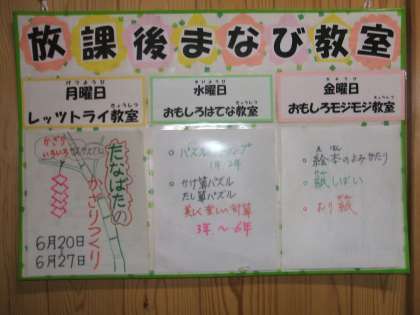 放課後まなび教室
げつようび
月曜日
きょうしつ
レッツトライ教室
かざり
いろいろ
たなばたの
かざりつくり
6月20日
6月27日
すいようび
水曜日
きょうしつ
おもしろはてな教室
1年・2年
かけ算パズル
たし算パズル
美しく楽しい計算
3年.～6年
きんようび
金曜日
きょうしつ
おもしろモジモジ教室
え ほん
絵本のよみかたり
紙しばい
おり紙